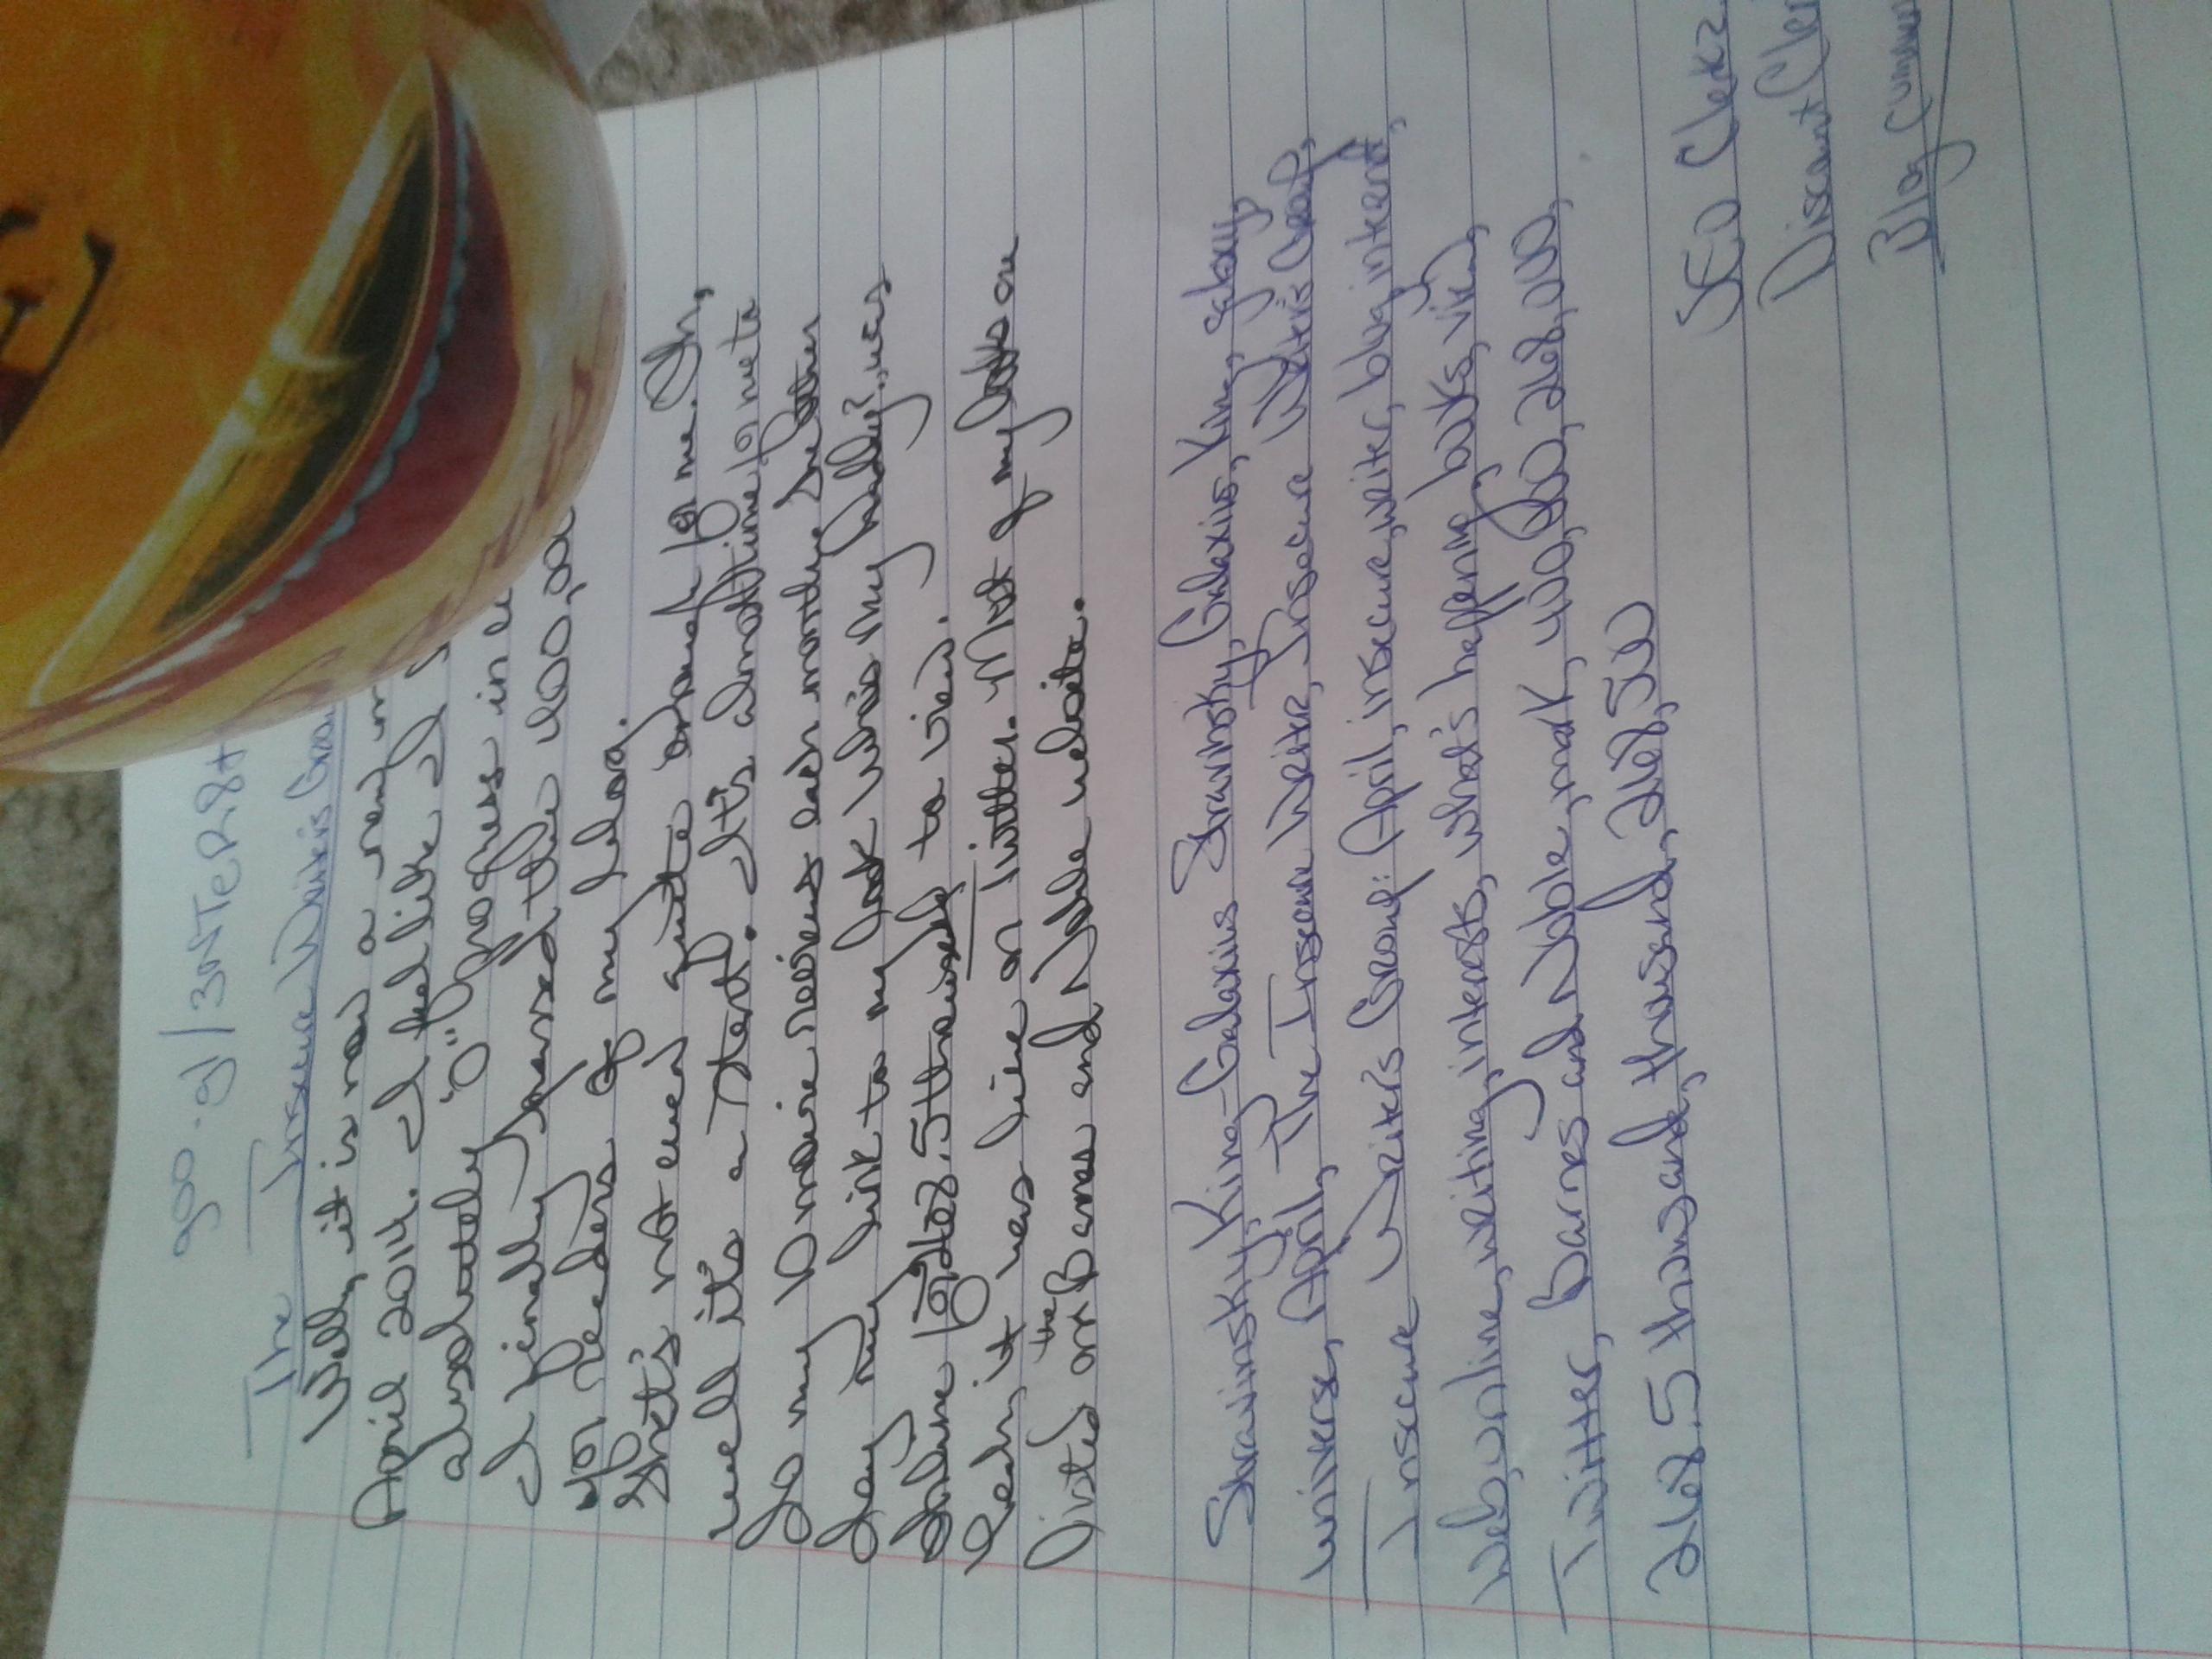 goo.gl/3NTeR8
The Insecure Writer's Gro
Well, it is now a new
April 2014. I feel like I
absolutely "0" progress in
I finally passed the 200,00
for readers of my blog.
That's not even quite enough for me. Oh,
well it's a start. It's another time for me to
So my
say my link to my book Who's My Daddy? was
268.5 thousand to view.
Yeah, it was live on twitter. Most of my books are
listed on the Barnes and Noble website.
Stravinsky King-Galaxius Stravinsky, Galaxius, King, galaxy,
universe, April, the Insecure Writer, Insecure Writer's Group,
Insecure Writer's Group: April, insecure, writer, blog, internet,
web, online, writing, interests, what's happening, books, view,
Twitter, Barnes and Noble, mark, 400,000, 268,000,
268.5 thousand, thousand, 268,500
SEO Clerkz
Discount Cle
Blog Commen